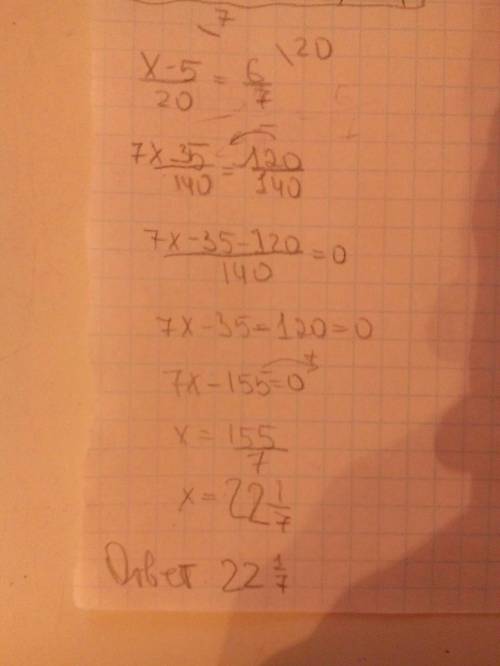 \7
\20
x-5/20 = 6/7
7x 35/140 = 120/140
7x-35-120/140 = 0
7x-35-120=0
7x-155=0
+
x = 155/7
x = 22 1/7
Ответ 22 1/7